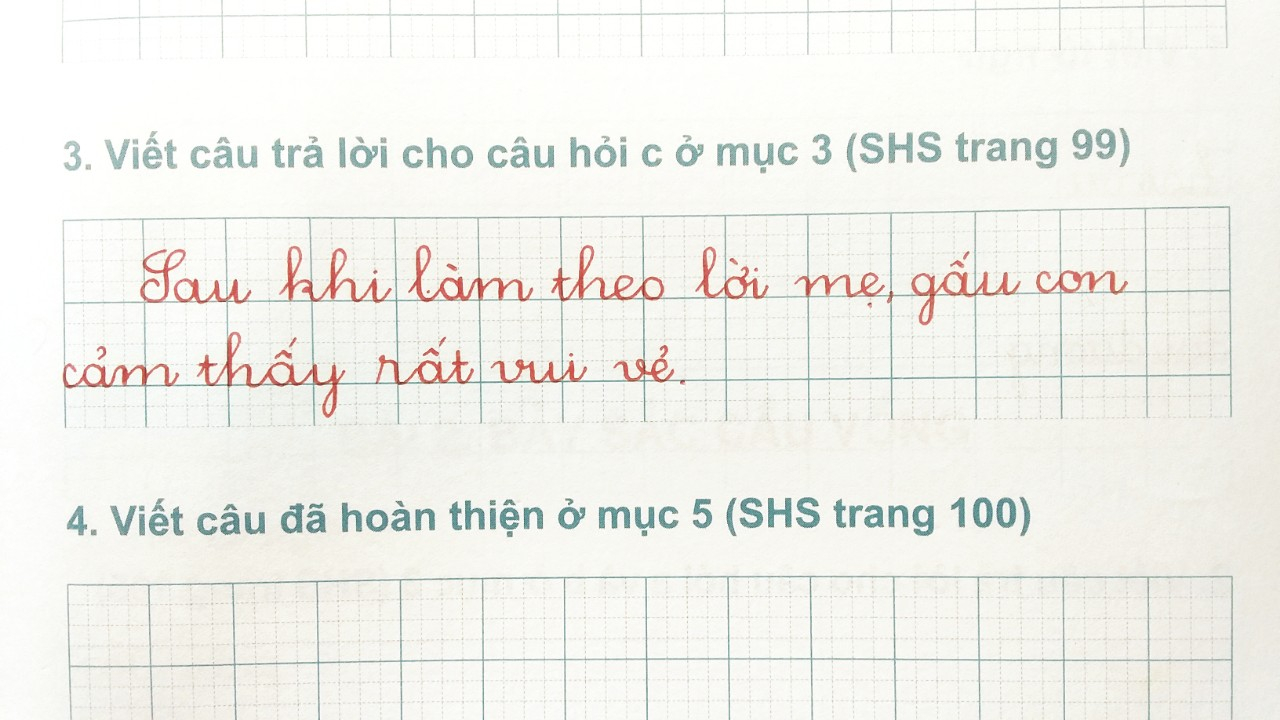 3. Viết câu trả lời cho câu hỏi c ở mục 3 (SHS trang 99)
Sau khi làm theo lời mẹ, gấu con
cảm thấy rất vui vẻ.
4. Viết câu đã hoàn thiện ở mục 5 (SHS trang 100)